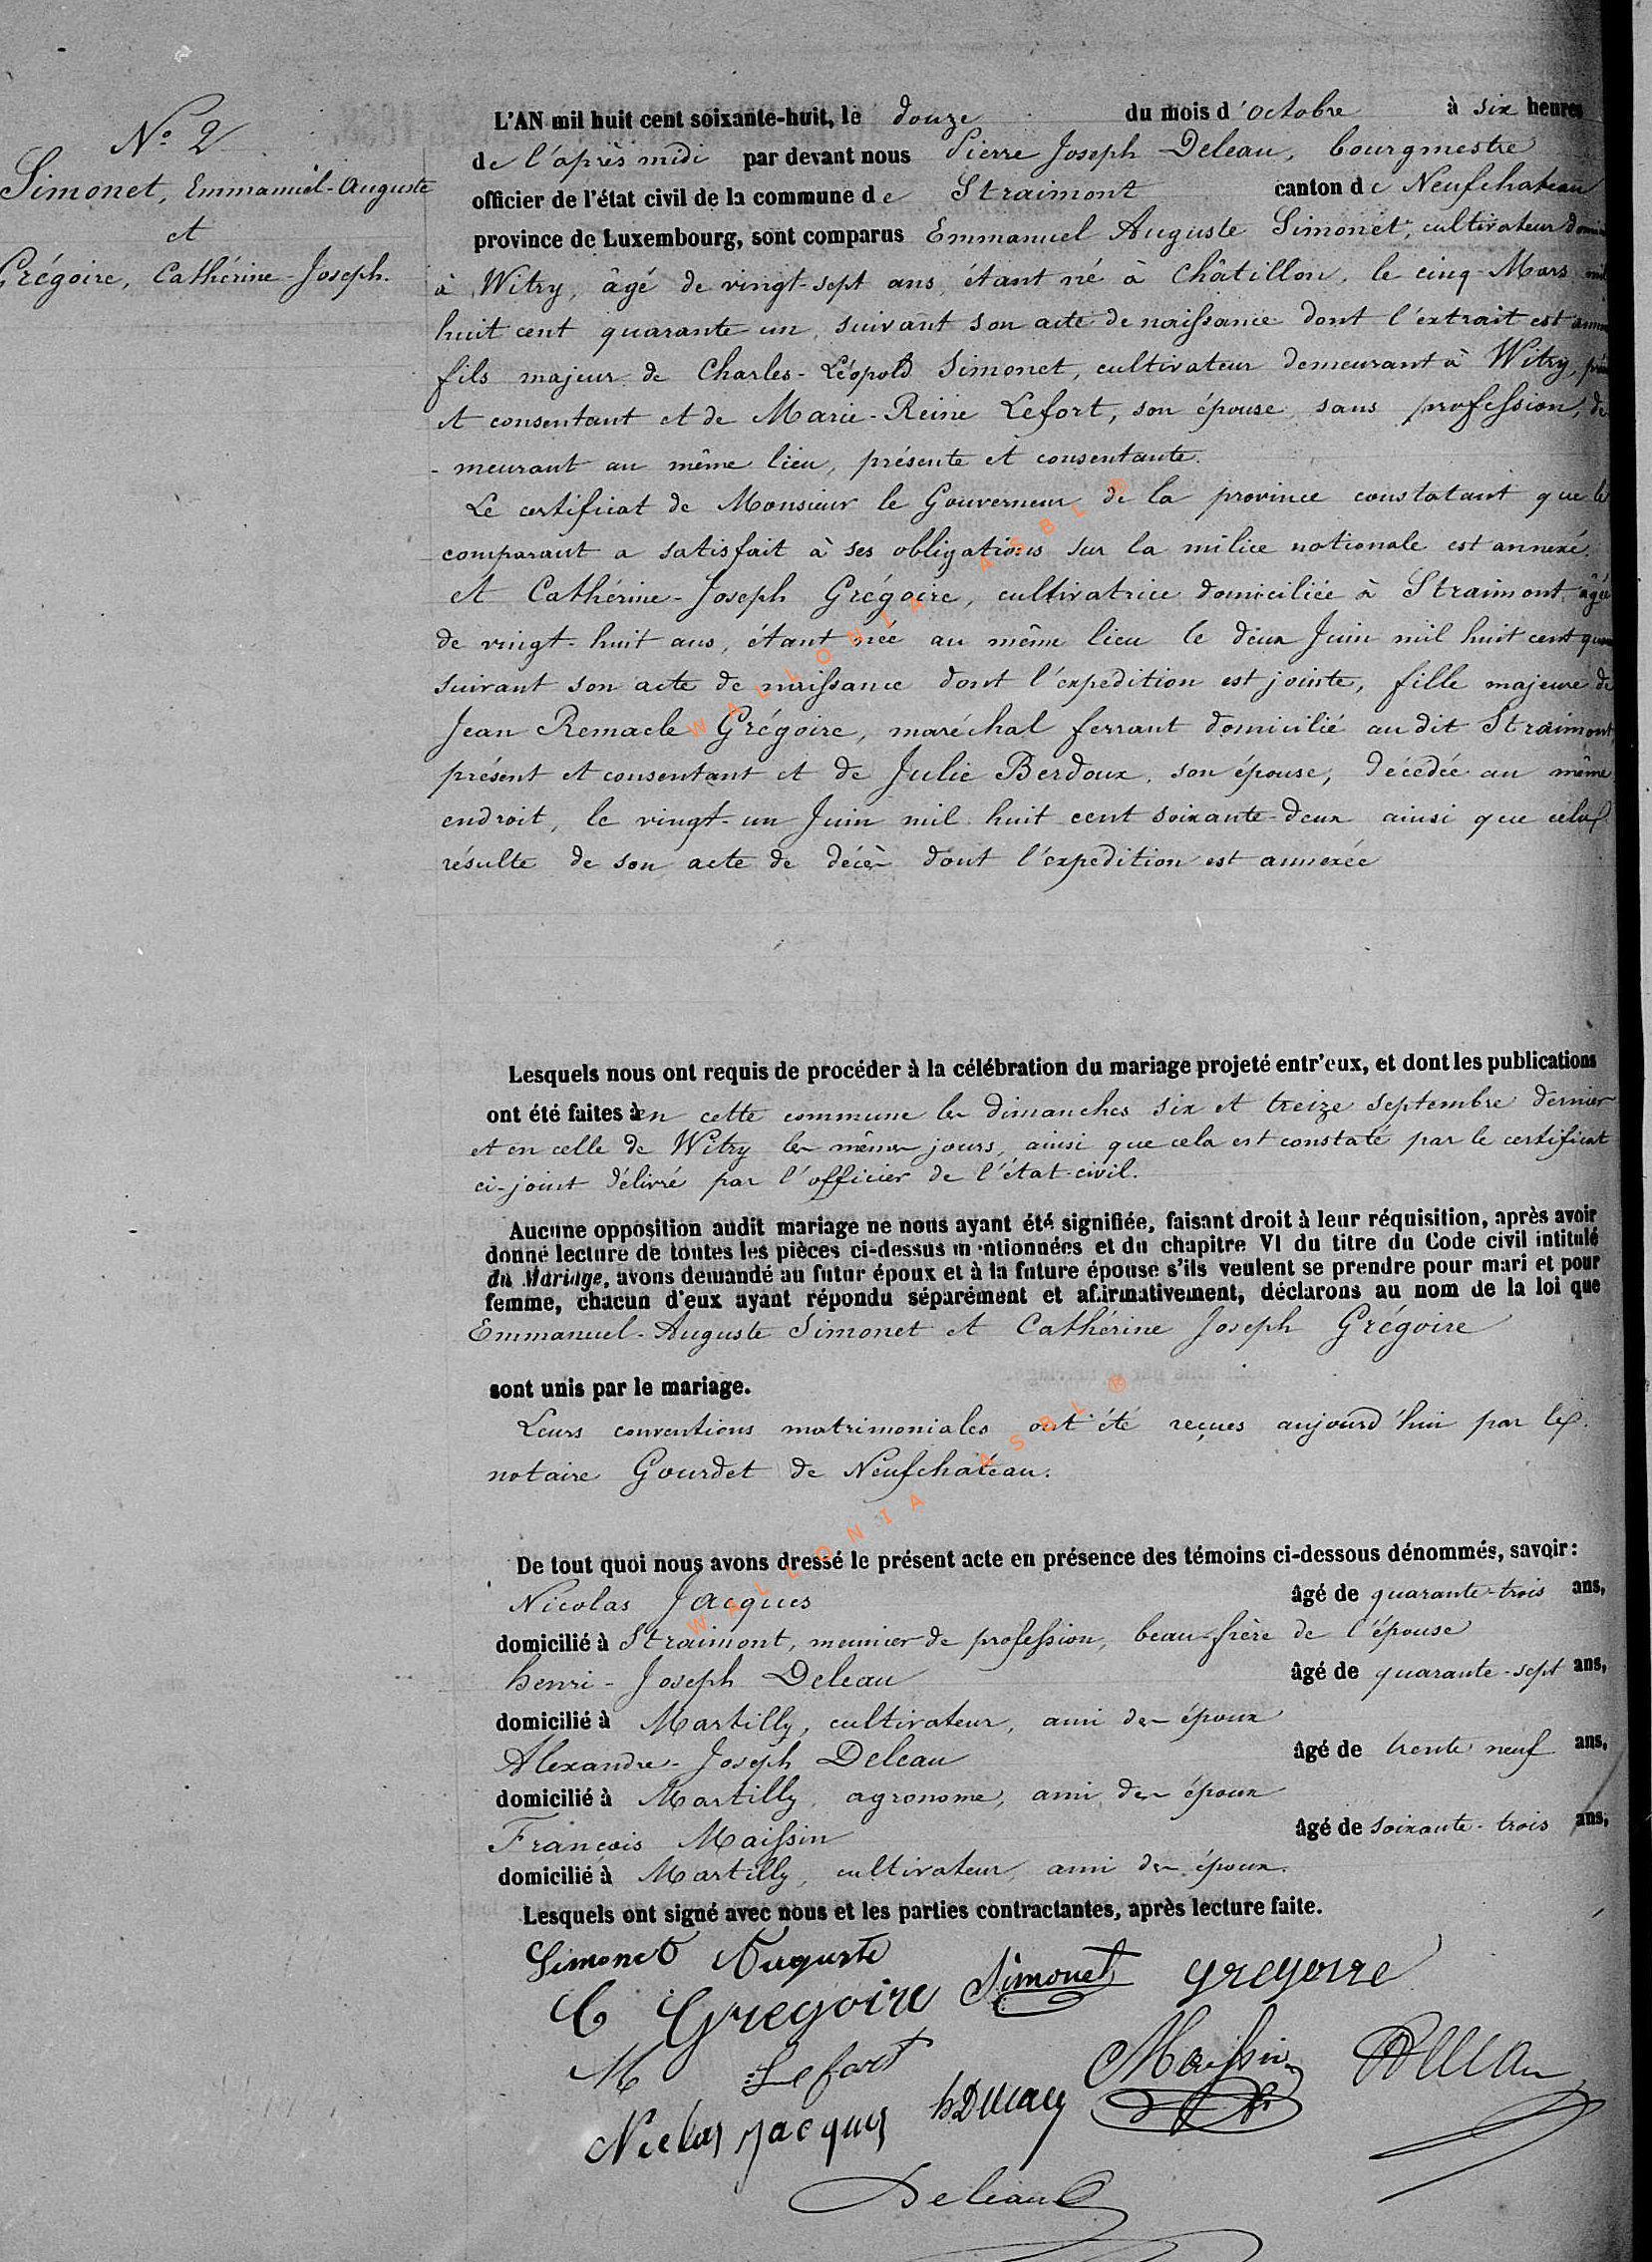 N° 2
Simonet, Emmanuel-Auguste
et
Grégoire, Cathérine-Joseph.
L'AN mil huit cent soixante-huit, le douze du mois d'octobre à six heures
de l'après midi par devant nous Pierre Joseph Deleau, bourgmestre
officier de l'état civil de la commune de Straimont canton de Neufchateau
province de Luxembourg, sont comparus Emmanuel Auguste Simonet, cultivateur
à Witry, âgé de vingt-sept ans, étant né à Châtillon, le cinq Mars mil
huit cent quarante-un, suivant son acte de naissance dont l'extrait est
fils majeur de Charles-Léopold Simonet, cultivateur demeurant à Witry,
et consentant et de Marie-Reine Lefort, son épouse sans profession, de
-meurant au même lieu, présente et consentante.
Le certificat de Monsieur le Gouverneur de la province constatant que le
comparant a satisfait à ses obligations sur la milice nationale est annexé.
et Cathérine-Joseph Grégoire, cultivatrice domiciliée à Straimont âgée
de vingt-huit ans, étant née au même lieu le deux Juin mil huit cent
suivant son acte de naissance dont l'expedition est jointe, fille majeure de
Jean Remacle Grégoire, maréchal ferrant domicilié au dit Straimont,
présent et consentant et de Julie Berdoux, son épouse, décédée au même
endroit, le vingt-un Juin mil huit cent soixante-deux ainsi que cela
résulte de son acte de décès dont l'expédition est annexée
Lesquels nous ont requis de procéder à la célébration du mariage projeté entr'eux, et dont les publications
ont été faites à en cette commune les dimanches six et treize septembre dernier
et en celle de Witry les mêmes jours, ainsi que cela est constaté par le certificat
ci-joint délivré par l'officier de l'état-civil.
Aucune opposition audit mariage ne nous ayant été signifiée, faisant droit à leur réquisition, après avoir
donné lecture de toutes les pièces ci-dessus mentionnées et du chapitre VI du titre du Code civil intitulé
du Mariage, avons demandé au futur époux et à la future épouse s'ils veulent se prendre pour mari et pour
femme, chacun d'eux ayant répondu séparément et affirmativement, déclarons au nom de la loi que
Emmanuel-Auguste Simonet et Cathérine Joseph Grégoire
sont unis par le mariage.
Leurs conventions matrimoniales ont été reçues aujourd'hui par le
notaire Gourdet de Neufchateau.
De tout quoi nous avons dressé le présent acte en présence des témoins ci-dessous dénommés, savoir:
Nicolas Jacques âgé de quarante-trois ans,
domicilié à Straimont, meunier de profession, beau-frère de l'épouse
henri-Joseph Deleau âgé de quarante-sept ans,
domicilié à Martilly, cultivateur, ami des époux
Alexandre-Joseph Deleau âgé de trente neuf ans,
domicilié à Martilly, agronome, ami des époux
François Maissin âgé de soixante-trois ans,
domicilié à Martilly, cultivateur, ami des époux.
Lesquels ont signé avec nous et les parties contractantes, après lecture faite.
Simonet Auguste
C Grégoire Simonet gregoire
M Lefort Maissin
Nicolas Jacques hDeleau
Deleau
WALLONIA ASBL ®
WALLONIA ASBL ®